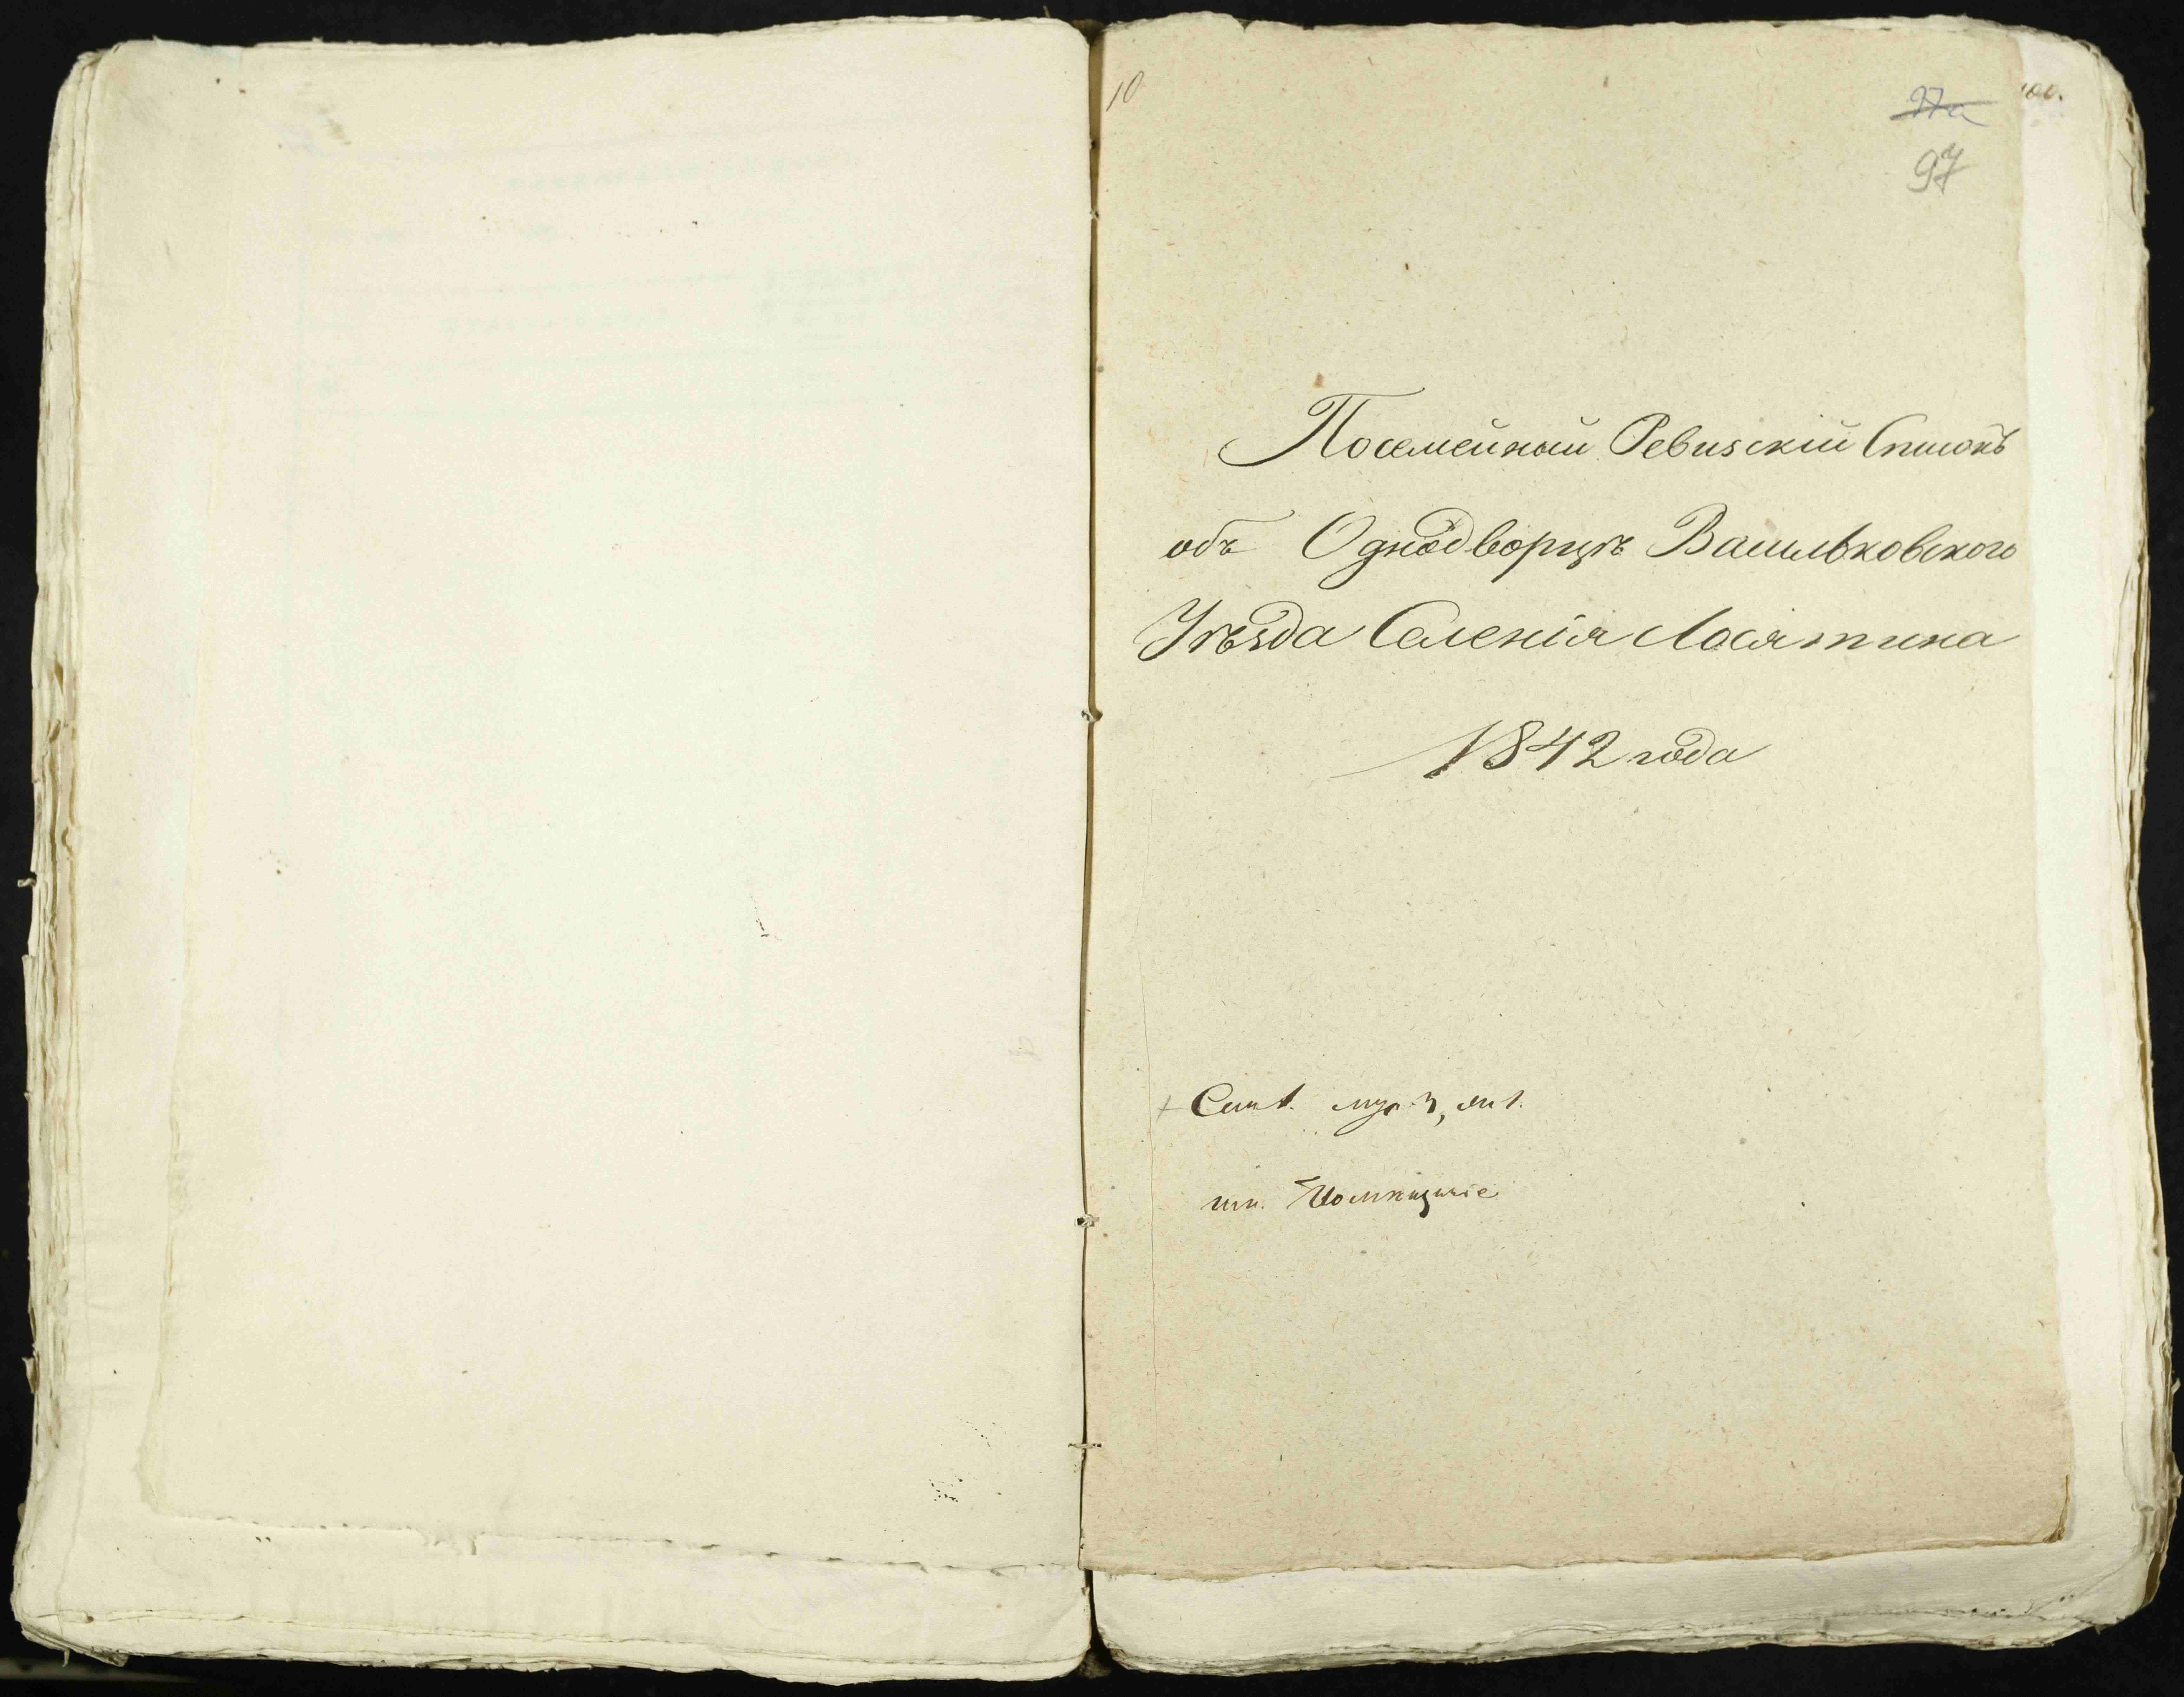 10
97а
100.
97
Посемейный Ревизскій Списокъ
объ Однодворцѣ Васильковского
Уѣзда Селенія Лосятина
1842 года
+ Сем 1. муж 3, жен 1.